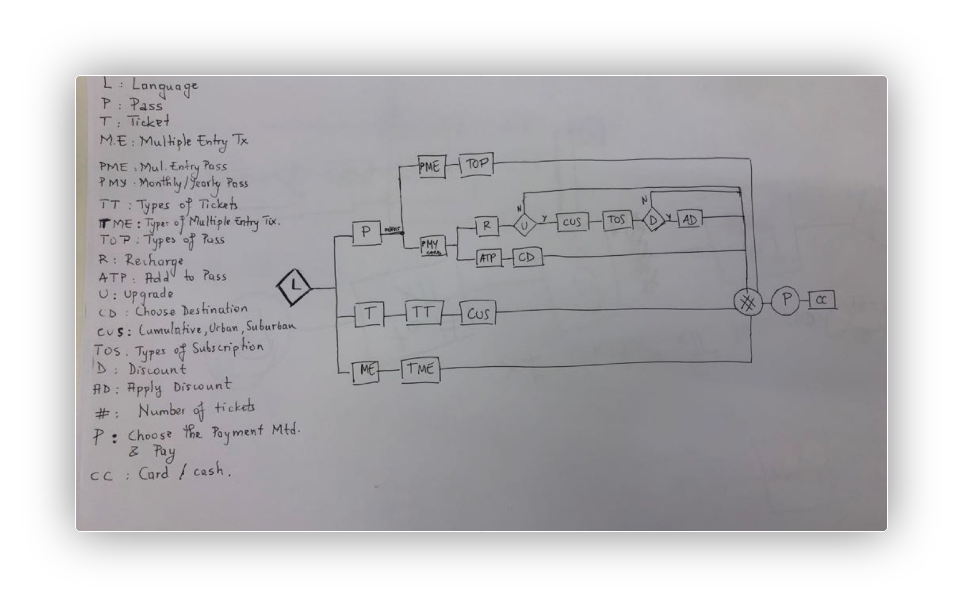 L : Language
P : Pass
T : Ticket
M.E : Multiple Entry Tx
PME : Mul. Entry Pass
PMY : Monthly/Yearly Pass
TT : Types of Tickets
TME : Types of Multiple Entry Tix.
TOP : Types of Pass
R : Recharge
ATP : Add to Pass
U : Upgrade
CD : Choose Destination
CUS : Cumulative, Urban, Suburban
TOS . Types of Subscription
D : Discount
AD : Apply Discount
# : Number of tickets
P : Choose the Payment Mtd.
& Pay
CC : Card / cash.
PME TOP
N N
R U Y CUS TOS D Y AD
P
PMY
ATP CD
L
# P CC
T TT CUS
ME TME